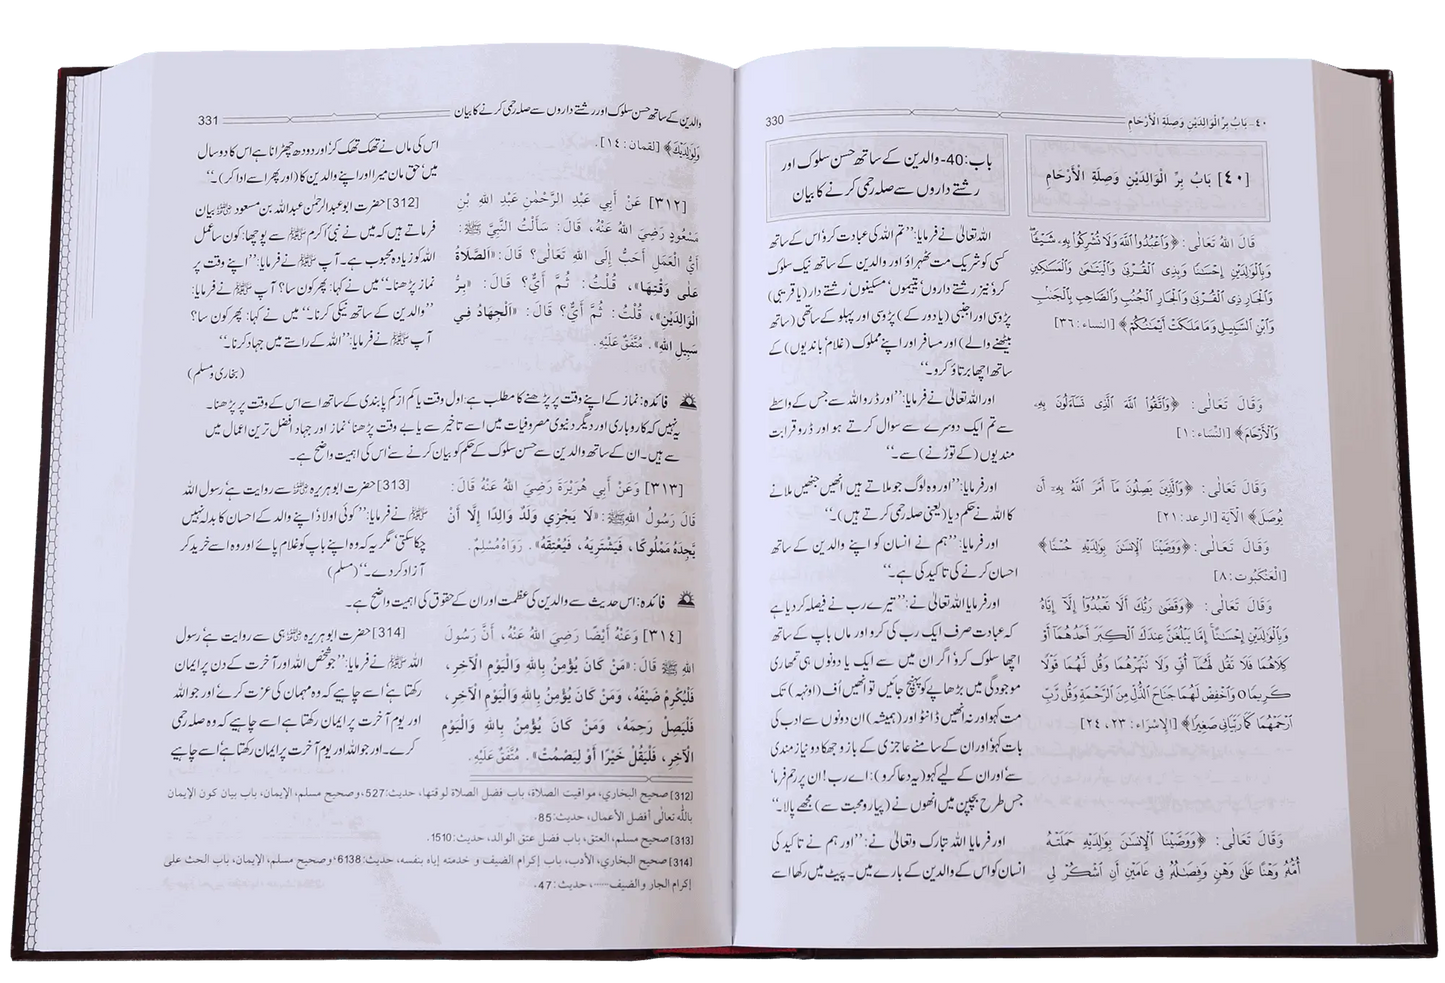 ٤٠- بَابُ بِرِّ الْوَالِدَيْنِ وَصِلَةِ الْأَرْحَامِ 330
[٤٠] بَابُ بِرِّ الْوَالِدَيْنِ وَصِلَةِ الْأَرْحَامِ
باب:40- والدین کے ساتھ حسن سلوک اور
رشتے داروں سے صلہ رحمی کرنے کا بیان
قَالَ اللهُ تَعَالٰى: ﴿وَاعْبُدُوا اللَّهَ وَلَا تُشْرِكُوا بِهِ شَيْئًا
وَبِالْوَالِدَيْنِ إِحْسَانًا وَبِذِي الْقُرْبَىٰ وَالْيَتَامَىٰ وَالْمَسَاكِينِ
وَالْجَارِ ذِي الْقُرْبَىٰ وَالْجَارِ الْجُنُبِ وَالصَّاحِبِ بِالْجَنْبِ
وَابْنِ السَّبِيلِ وَمَا مَلَكَتْ أَيْمَانُكُمْ﴾ [النساء: ٣٦]
وَقَالَ تَعَالٰى: ﴿وَاتَّقُوا اللَّهَ الَّذِي تَسَاءَلُونَ بِهِ
وَالْأَرْحَامَ﴾ [النِّسَاء: ١]
وَقَالَ تَعَالٰى: ﴿وَالَّذِينَ يَصِلُونَ مَا أَمَرَ اللَّهُ بِهِ أَن
يُوصَلَ﴾ الْآيَةَ [الرعد: ٢١]
وَقَالَ تَعَالٰى: ﴿وَوَصَّيْنَا الْإِنسَانَ بِوَالِدَيْهِ حُسْنًا﴾
[الْعَنْكَبُوت: ٨]
وَقَالَ تَعَالٰى: ﴿وَقَضَىٰ رَبُّكَ أَلَّا تَعْبُدُوا إِلَّا إِيَّاهُ
وَبِالْوَالِدَيْنِ إِحْسَانًا إِمَّا يَبْلُغَنَّ عِندَكَ الْكِبَرَ أَحَدُهُمَا أَوْ
كِلَاهُمَا فَلَا تَقُل لَّهُمَا أُفٍّ وَلَا تَنْهَرْهُمَا وَقُل لَّهُمَا قَوْلًا
كَرِيمًا ٥ وَاخْفِضْ لَهُمَا جَنَاحَ الذُّلِّ مِنَ الرَّحْمَةِ وَقُل رَّبِّ
ارْحَمْهُمَا كَمَا رَبَّيَانِي صَغِيرًا﴾ [الإِسْرَاء: ٢٣، ٢٤]
وَقَالَ تَعَالٰى: ﴿وَوَصَّيْنَا الْإِنسَانَ بِوَالِدَيْهِ حَمَلَتْهُ
أُمُّهُ وَهْنًا عَلَىٰ وَهْنٍ وَفِصَالُهُ فِي عَامَيْنِ أَنِ اشْكُرْ لِي
اللہ تعالیٰ نے فرمایا: ’’تم اللہ کی عبادت کرو‘ اس کے ساتھ
کسی کو شریک مت ٹھہراؤ اور والدین کے ساتھ نیک سلوک
کرو‘ نیز رشتے داروں‘ یتیموں‘ مسکینوں‘ رشتے دار (یا قریبی)
پڑوسی اور اجنبی (یا دور کے) پڑوسی اور پہلو کے ساتھی (ساتھ
بیٹھنے والے) اور مسافر اور اپنے مملوک (غلام‘ باندیوں) کے
ساتھ اچھا برتاؤ کرو۔‘‘
اور اللہ تعالیٰ نے فرمایا: ’’اور ڈرو اللہ سے جس کے واسطے
سے تم ایک دوسرے سے سوال کرتے ہو اور ڈرو قرابت
مندیوں (کے توڑنے) سے۔‘‘
اور فرمایا: ’’اور وہ لوگ جو ملاتے ہیں انھیں جنھیں ملانے
کا اللہ نے حکم دیا (یعنی صلہ رحمی کرتے ہیں)۔‘‘
اور فرمایا: ’’ہم نے انسان کو اپنے والدین کے ساتھ
احسان کرنے کی تاکید کی ہے۔‘‘
اور فرمایا اللہ تعالیٰ نے: ’’تیرے رب نے فیصلہ کر دیا ہے
کہ عبادت صرف ایک رب کی کرو اور ماں باپ کے ساتھ
اچھا سلوک کرو‘ اگر ان میں سے ایک یا دونوں ہی تمھاری
موجودگی میں بڑھاپے کو پہنچ جائیں تو انھیں اُف (اونہہ) تک
مت کہو اور نہ انھیں ڈانٹو اور (ہمیشہ) ان دونوں سے ادب کی
بات کہو‘ اور ان کے سامنے عاجزی کے بازو جھکا دو نیاز مندی
سے‘ اور ان کے لیے کہو (یہ دعا کرو): اے رب! ان پر رحم فرما‘
جس طرح بچپن میں انھوں نے (پیار و محبت سے) مجھے پالا۔‘‘
اور فرمایا اللہ تبارک وتعالیٰ نے: ’’اور ہم نے تاکید کی
انسان کو اس کے والدین کے بارے میں۔ پیٹ میں رکھا اسے
والدین کے ساتھ حسن سلوک اور رشتے داروں سے صلہ رحمی کرنے کا بیان 331
وَلِوَالِدَيْكَ﴾ [لقمان: ١٤].
اس کی ماں نے تھک تھک کر‘ اور دودھ چھڑانا ہے اس کا دو سال
میں‘ حق مان میرا اور اپنے والدین کا (اور پھر اسے ادا کر)۔‘‘
[٣١٢] عَنْ أَبِي عَبْدِ الرَّحْمٰنِ عَبْدِ اللهِ بْنِ
مَسْعُودٍ رَضِيَ اللهُ عَنْهُ، قَالَ: سَأَلْتُ النَّبِيَّ ﷺ:
أَيُّ الْعَمَلِ أَحَبُّ إِلَى اللهِ تَعَالٰى؟ قَالَ: «الصَّلَاةُ
عَلٰى وَقْتِهَا»، قُلْتُ: ثُمَّ أَيٌّ؟ قَالَ: «بِرُّ
الْوَالِدَيْنِ»، قُلْتُ: ثُمَّ أَيٌّ؟ قَالَ: «الْجِهَادُ فِي
سَبِيلِ اللهِ». مُتَّفَقٌ عَلَيْهِ.
[312] حضرت ابوعبدالرحمٰن عبداللہ بن مسعود رضی اللہ عنہ بیان
فرماتے ہیں کہ میں نے نبی اکرم ﷺ سے پوچھا: کون سا عمل
اللہ کو زیادہ محبوب ہے۔ آپ ﷺ نے فرمایا: ’’اپنے وقت پر
نماز پڑھنا۔‘‘ میں نے کہا: پھر کون سا؟ آپ ﷺ نے فرمایا:
’’والدین کے ساتھ نیکی کرنا۔‘‘ میں نے کہا: پھر کون سا؟
آپ ﷺ نے فرمایا: ’’اللہ کے راستے میں جہاد کرنا۔‘‘
(بخاری و مسلم)
فائدہ: نماز کے اپنے وقت پر پڑھنے کا مطلب ہے: اول وقت یا کم از کم پابندی کے ساتھ اسے اس کے وقت پر پڑھنا۔
یہ نہیں کہ کاروباری اور دیگر دنیوی مصروفیات میں اسے تاخیر سے یا بے وقت پڑھنا‘ نماز اور جہاد افضل ترین اعمال میں
سے ہیں۔ ان کے ساتھ والدین سے حسن سلوک کے حکم کو بیان کرنے سے‘ اس کی اہمیت واضح ہے۔
[٣١٣] وَعَنْ أَبِي هُرَيْرَةَ رَضِيَ اللهُ عَنْهُ قَالَ:
قَالَ رَسُولُ اللهِ ﷺ: «لَا يَجْزِي وَلَدٌ وَالِدًا إِلَّا أَنْ
يَّجِدَهُ مَمْلُوكًا، فَيَشْتَرِيَهُ، فَيُعْتِقَهُ». رَوَاهُ مُسْلِمٌ.
[313] حضرت ابوہریرہ رضی اللہ عنہ سے روایت ہے‘ رسول اللہ
ﷺ نے فرمایا: ’’کوئی اولاد اپنے والد کے احسان کا بدلہ نہیں
چکا سکتی‘ مگر یہ کہ وہ اپنے باپ کو غلام پائے اور وہ اسے خرید کر
آزاد کر دے۔‘‘ (مسلم)
فائدہ: اس حدیث سے والدین کی عظمت اور ان کے حقوق کی اہمیت واضح ہے۔
[٣١٤] وَعَنْهُ أَيْضًا رَضِيَ اللهُ عَنْهُ، أَنَّ رَسُولَ
اللهِ ﷺ قَالَ: «مَنْ كَانَ يُؤْمِنُ بِاللهِ وَالْيَوْمِ الْآخِرِ،
فَلْيُكْرِمْ ضَيْفَهُ، وَمَنْ كَانَ يُؤْمِنُ بِاللهِ وَالْيَوْمِ الْآخِرِ،
فَلْيَصِلْ رَحِمَهُ، وَمَنْ كَانَ يُؤْمِنُ بِاللهِ وَالْيَوْمِ
الْآخِرِ، فَلْيَقُلْ خَيْرًا أَوْ لِيَصْمُتْ». مُتَّفَقٌ عَلَيْهِ.
[314] حضرت ابوہریرہ رضی اللہ عنہ ہی سے روایت ہے‘ رسول
اللہ ﷺ نے فرمایا: ’’جو شخص اللہ اور آخرت کے دن پر ایمان
رکھتا ہے‘ اسے چاہیے کہ وہ مہمان کی عزت کرے‘ اور جو اللہ
اور یوم آخرت پر ایمان رکھتا ہے اسے چاہیے کہ وہ صلہ رحمی
کرے۔ اور جو اللہ اور یوم آخرت پر ایمان رکھتا ہے‘ اسے چاہیے
[312] صحیح البخاري، مواقيت الصلاة، باب فضل الصلاة لوقتها، حدیث:527، وصحیح مسلم، الإیمان، باب بیان کون الإیمان
باللّٰہ تعالٰی أفضل الأعمال، حدیث:85.
[313] صحیح مسلم، العتق، باب فضل عتق الوالد، حدیث:1510.
[314] صحیح البخاري، الأدب، باب إکرام الضیف و خدمته إیاہ بنفسه، حدیث:6138، وصحیح مسلم، الإیمان، باب الحث علیٰ
إکرام الجار والضیف......، حدیث:47.